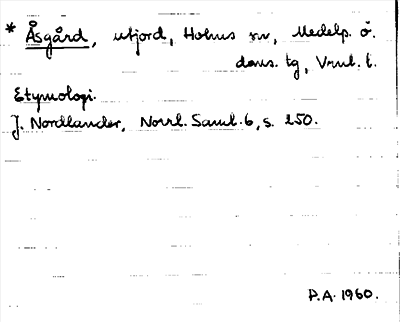 * Åsgård, utjord, Holms sn, Medelp. ö.
doms. tg, Vrnl. l.
Etymologi.
J. Nordlander, Norrl. Saml. 6, s. 250.
P.A. 1960.